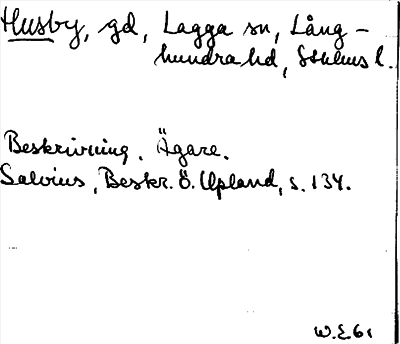 Husby, gd, Lagga sn, Lång-
hundra hd, Sthlms l.
Beskrivning. Ägare.
Salvius, Beskr. ö. Upland, s. 134.
W.E. 61